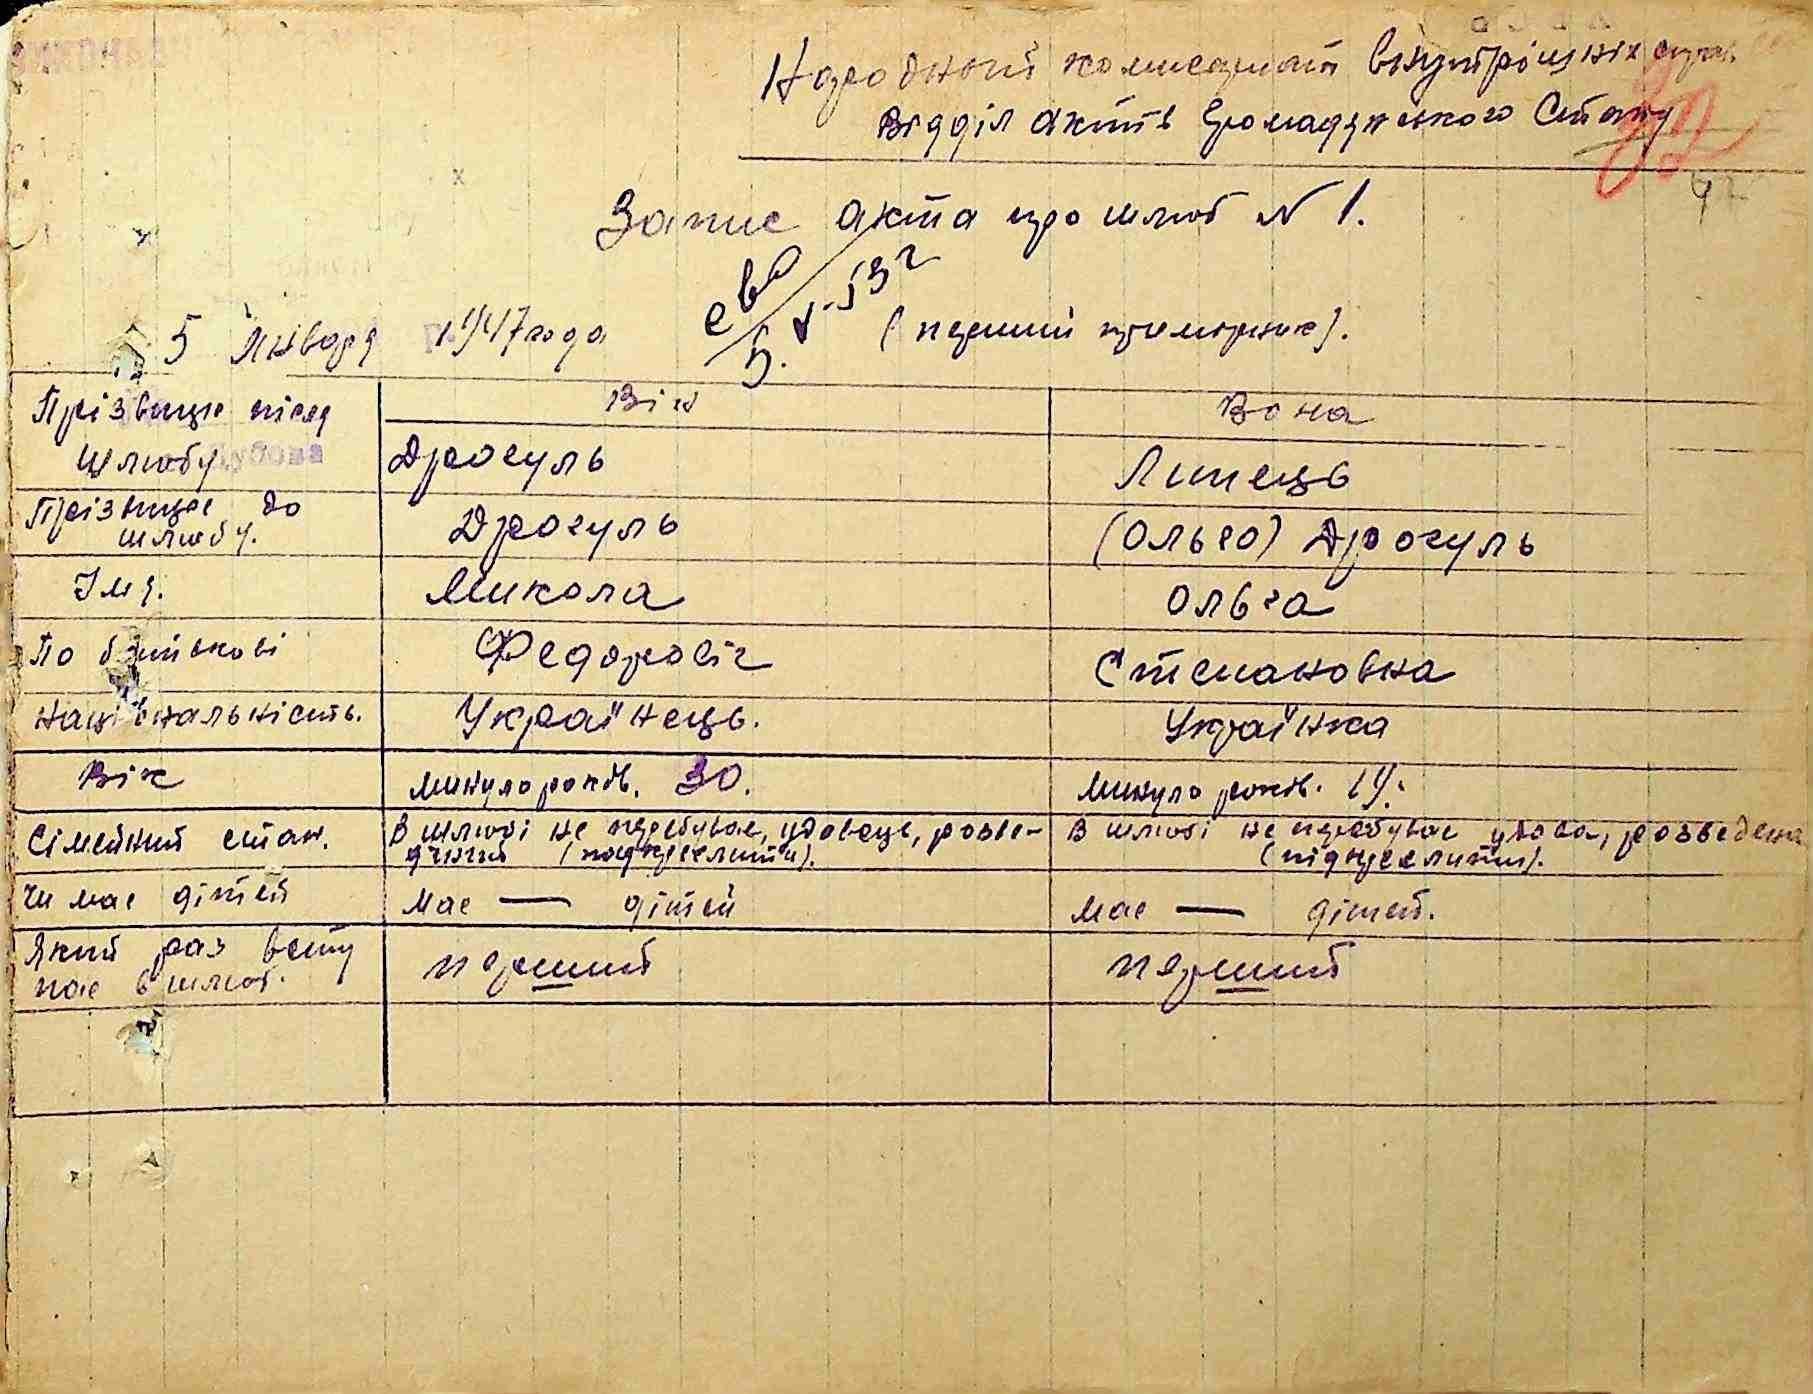 Народный комисариат внутрішніх справ
Відділ актів Громадянського Стану
Запис акта про шлюб N 1.
5 Января 1947 года
(перший примірник).
Він Вона
Прізвище після шлюбу Дрогуль Липець
Прізвище до шлюбу. Дрогуль (Ольго) Дрогуль
Імя. Микола Ольга
По батькові Федоровіч Степановна
Національність. Українець. Українка
Вік Минуло років. 30. Минуло років. 19.
Сімейний стан. В шлюбі не перебуває, удовець, розве- В шлюбі не перебуває удова, розведена
дений (подкреслити). (підкреслити).
Чи має дітей має — дітей має — дітей.
Який раз всту
пає в шлюб. перший перший